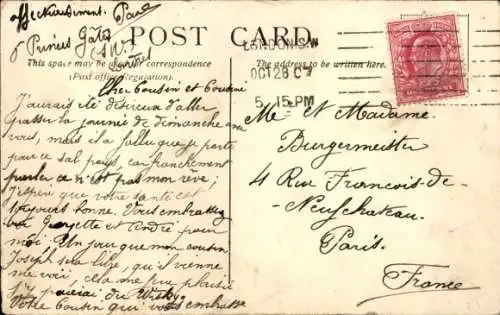 affectueusement. Paul
5 Princes Gate
S.W.
Londres
POST CARD.
This space may be used for correspondence
(Post office Regulation).
The address to be written here.
LONDON. S.W
OCT 28 07
5. 15 PM
Cher Cousin et Cousine
J'aurais été désireux d'aller
passer la journée de dimanche avec
vous, mais il a fallu que je parte
pour ce sal pays, car franchement
parler ce n'est pas mon rêve;
J'espère que votre santé est
toujours bonne. Vous embrassez
Georgette et André pour
moi. Un jour que mon cousin
Joseph sera libre, qu'il vienne
me voir, cela me fera plaisir
paierai du Wisky
Votre Cousin qui vous embrasse
Me et Madame.
Burgermeister
4 Rue François-de-
-Neufchateau.
Paris.
France